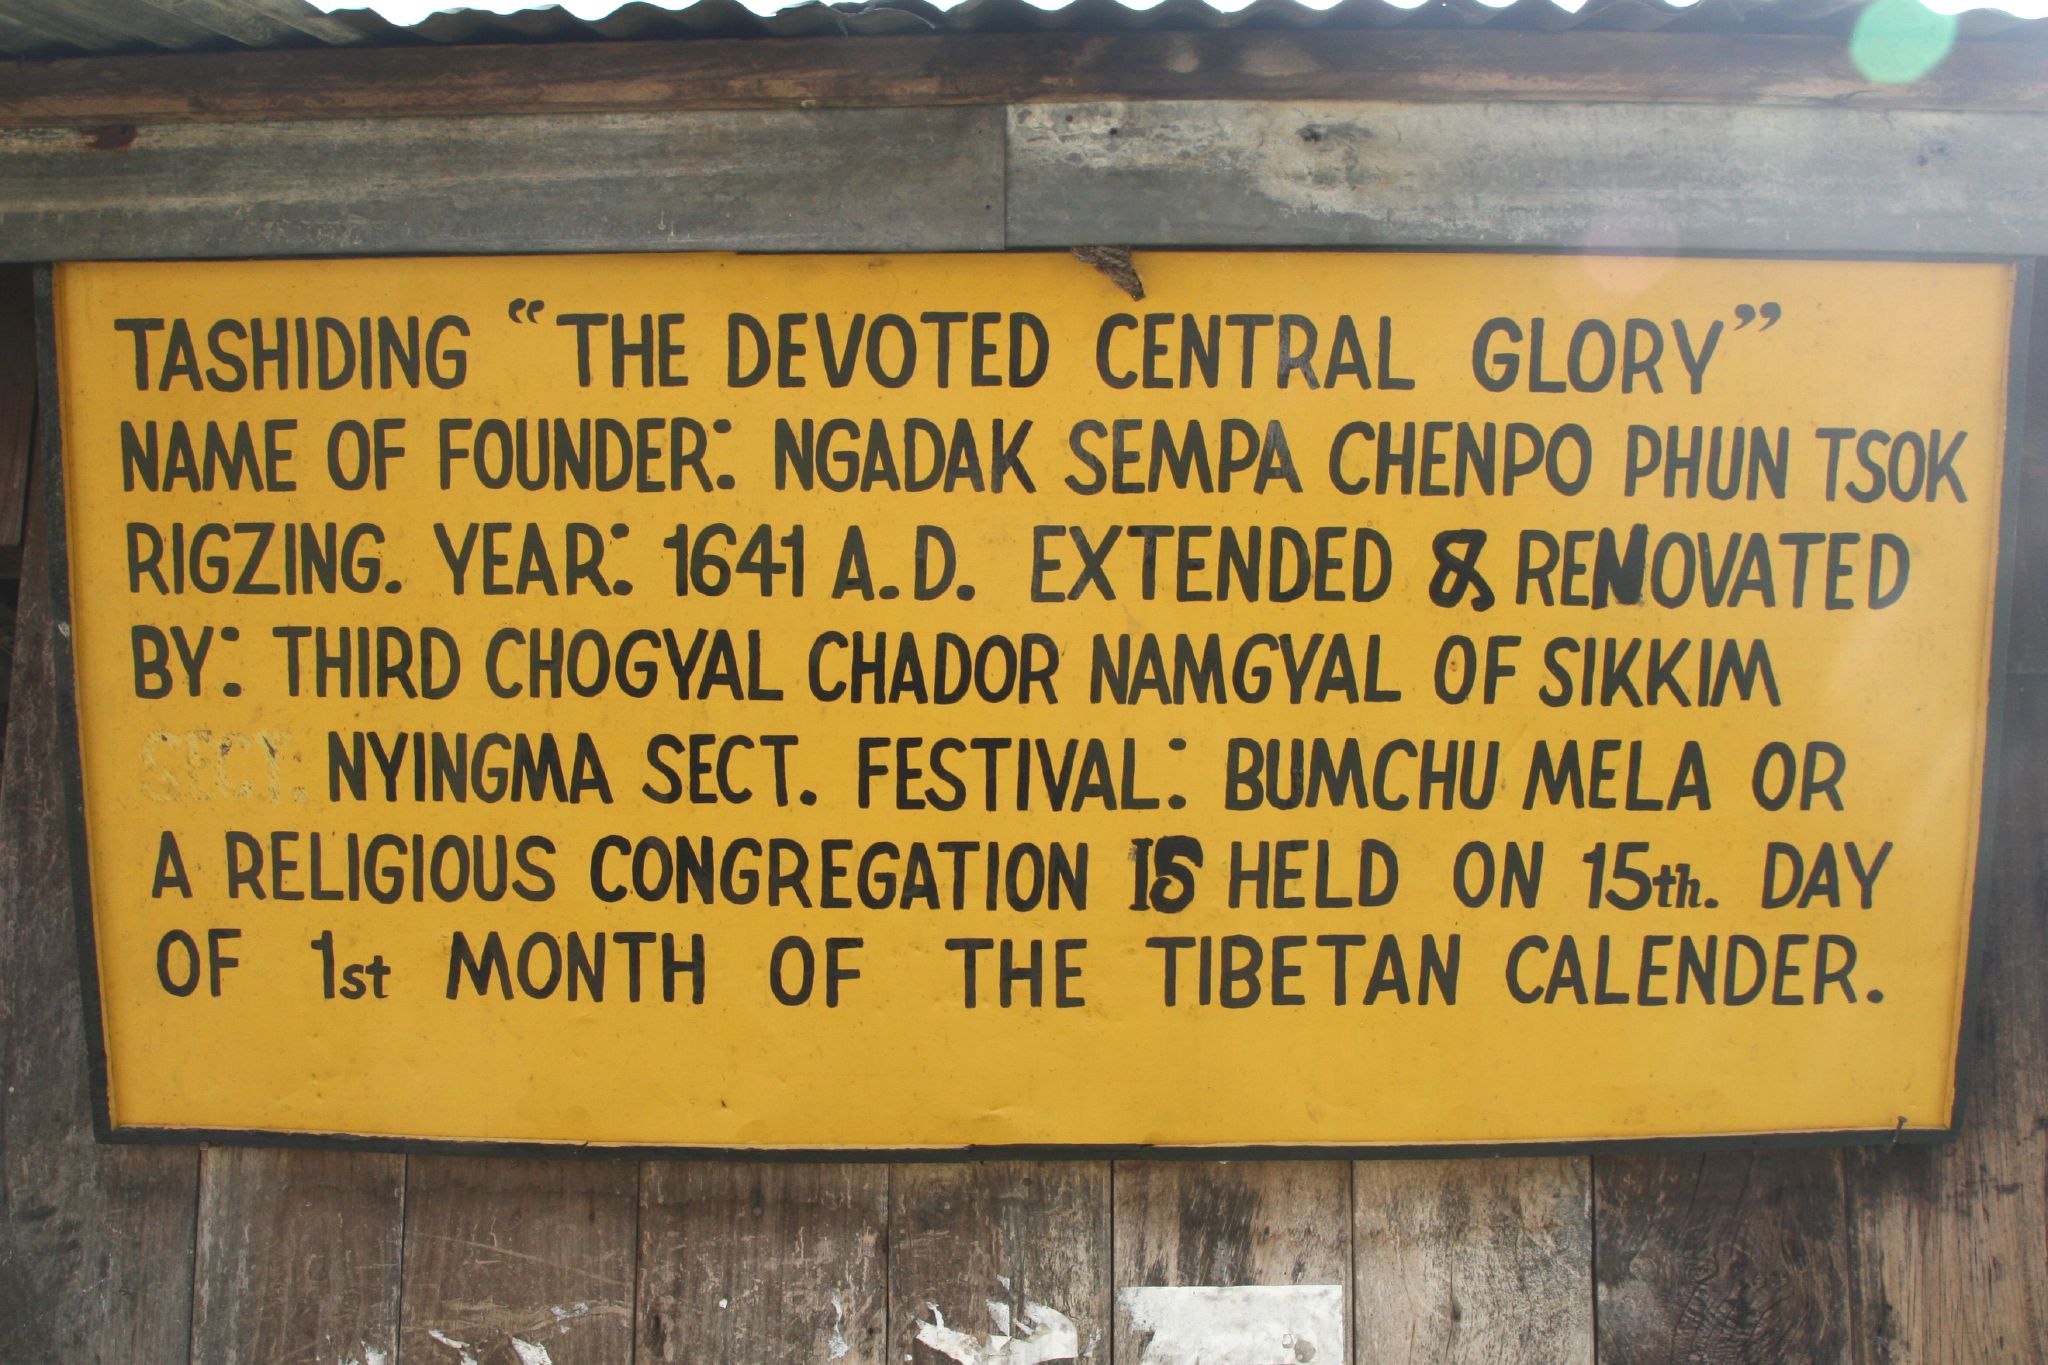 TASHIDING “THE DEVOTED CENTRAL GLORY”
NAME OF FOUNDER: NGADAK SEMPA CHENPO PHUN TSOK
RIGZING. YEAR: 1641 A.D. EXTENDED & RENOVATED
BY: THIRD CHOGYAL CHADOR NAMGYAL OF SIKKIM
SECT. NYINGMA SECT. FESTIVAL: BUMCHU MELA OR
A RELIGIOUS CONGREGATION IS HELD ON 15th. DAY
OF 1st MONTH OF THE TIBETAN CALENDER.